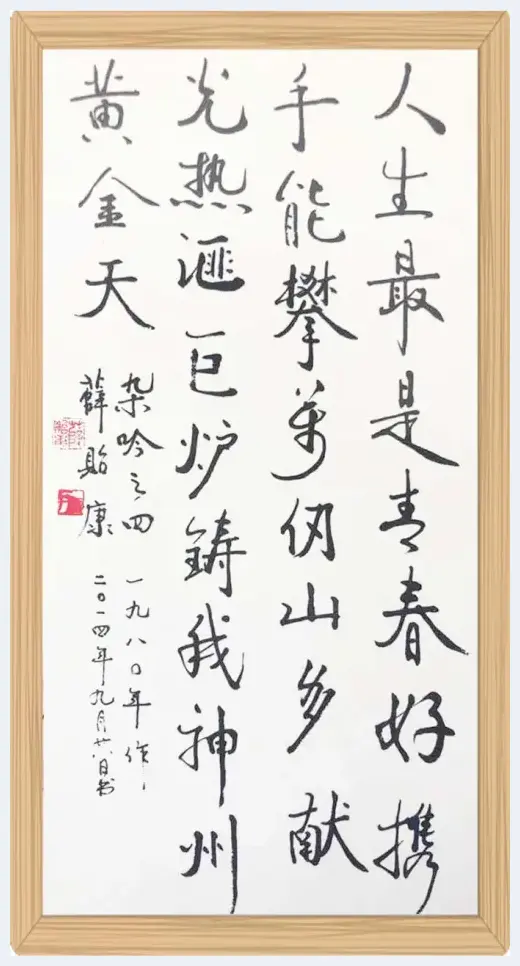 人生最是青春好携
手能攀萬仞山多献
光热滙巨炉铸我神州
黄金天
杂吟之四 一九八〇年作
薛貽康 二〇一四年九月廿八日书